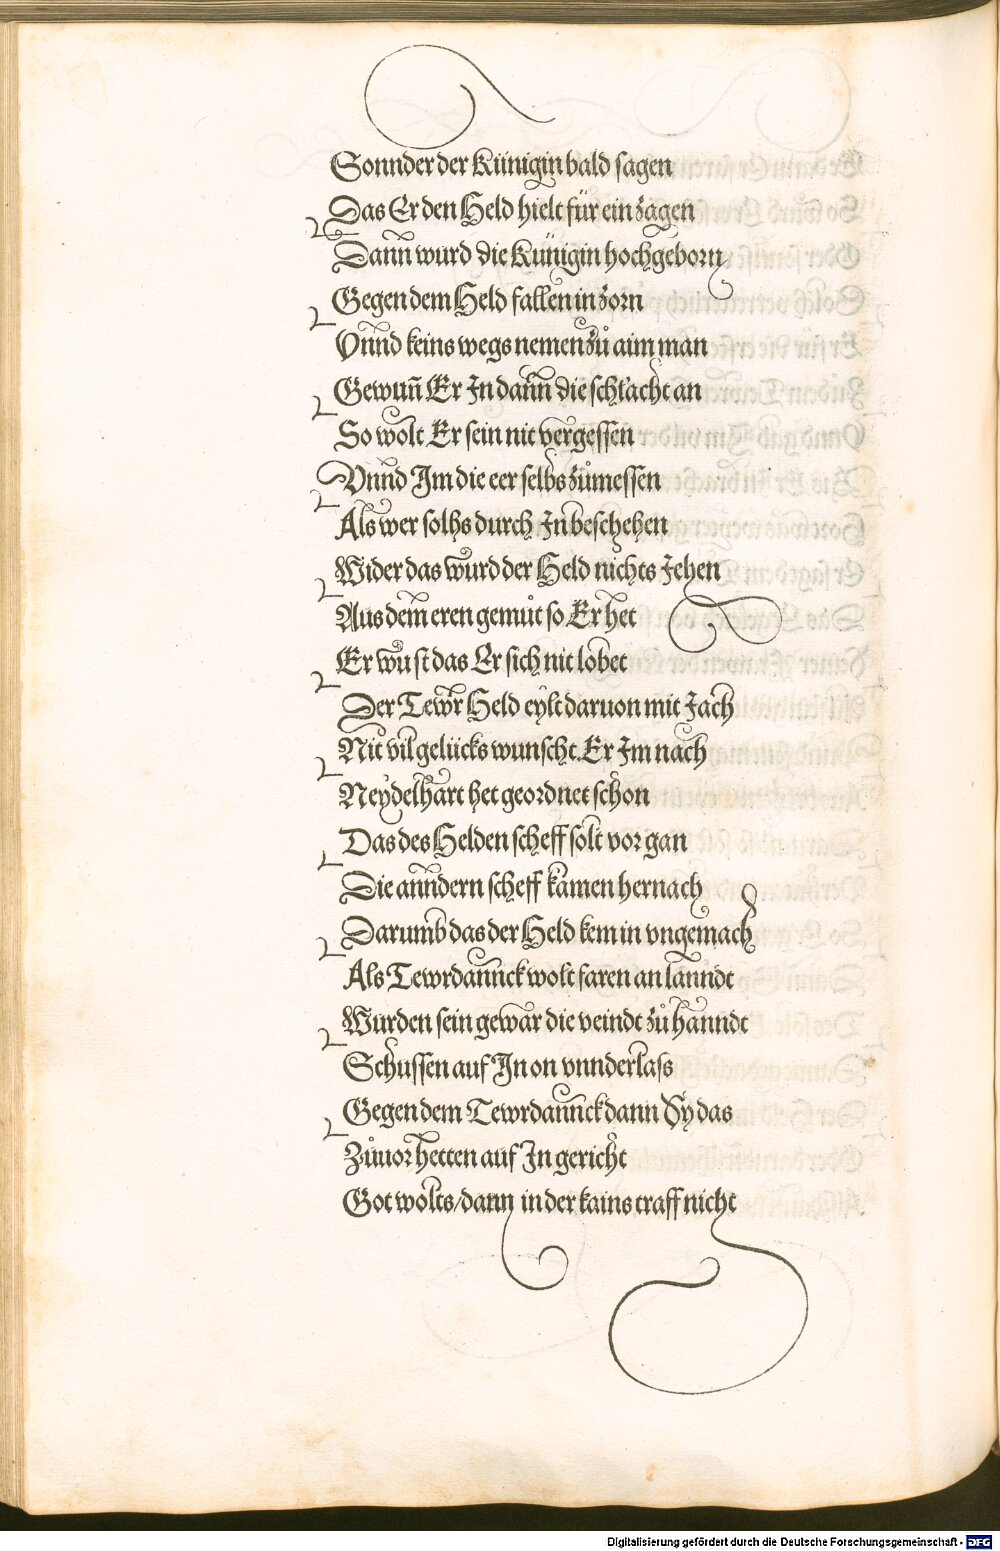 Sonnder der Künigin bald sagen
Das Er den Held hielt für ein zagen
Dann wurd die Künigin hochgeborn
Gegen dem Held fallen in zorn
Vnnd keins wegs nemen zů aim man
Gewuñ Er In dann die schlacht an
So wolt Er sein nit vergessen
Vnnd Im die eer selbs zůmessen
Als wer solhs durch In beschehen
Wider das wurd der Held nichts Jehen
Aus dem eren gemůt so Er het
Er wust das Er sich nit lobet
Der Tewr Held eylt daruon mit Jach
Nit vil gelücks wunscht Er Im nach
Neydelhart het geordnet schon
Das des Helden scheff solt vor gan
Die anndern scheff kamen hernach
Darumb das der Held kem in vngemach
Als Tewrdannck wolt faren an lanndt
Wurden sein gewar die veindt zů hanndt
Schussen auf In on vnnderlass
Gegen dem Tewrdannck dann Sy das
Zůuor hetten auf In gericht
Got wolts/dann in der kains traff nicht
Digitalisierung gefördert durch die Deutsche Forschungsgemeinschaft - DFG